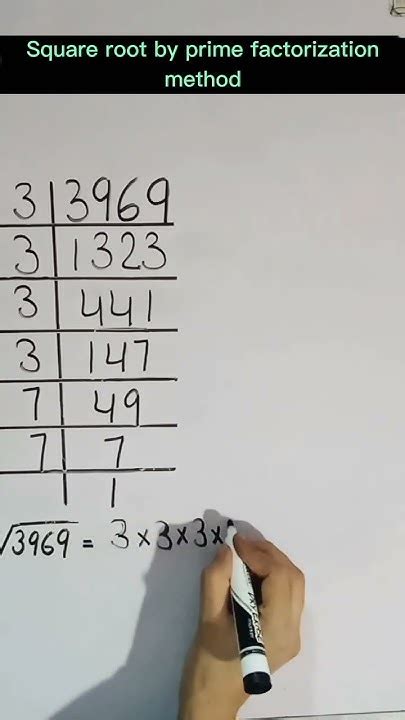 Square root by prime factorization
method
3 3969
3 1323
3 441
3 147
7 49
7 7
1
√3969 = 3×3×3×